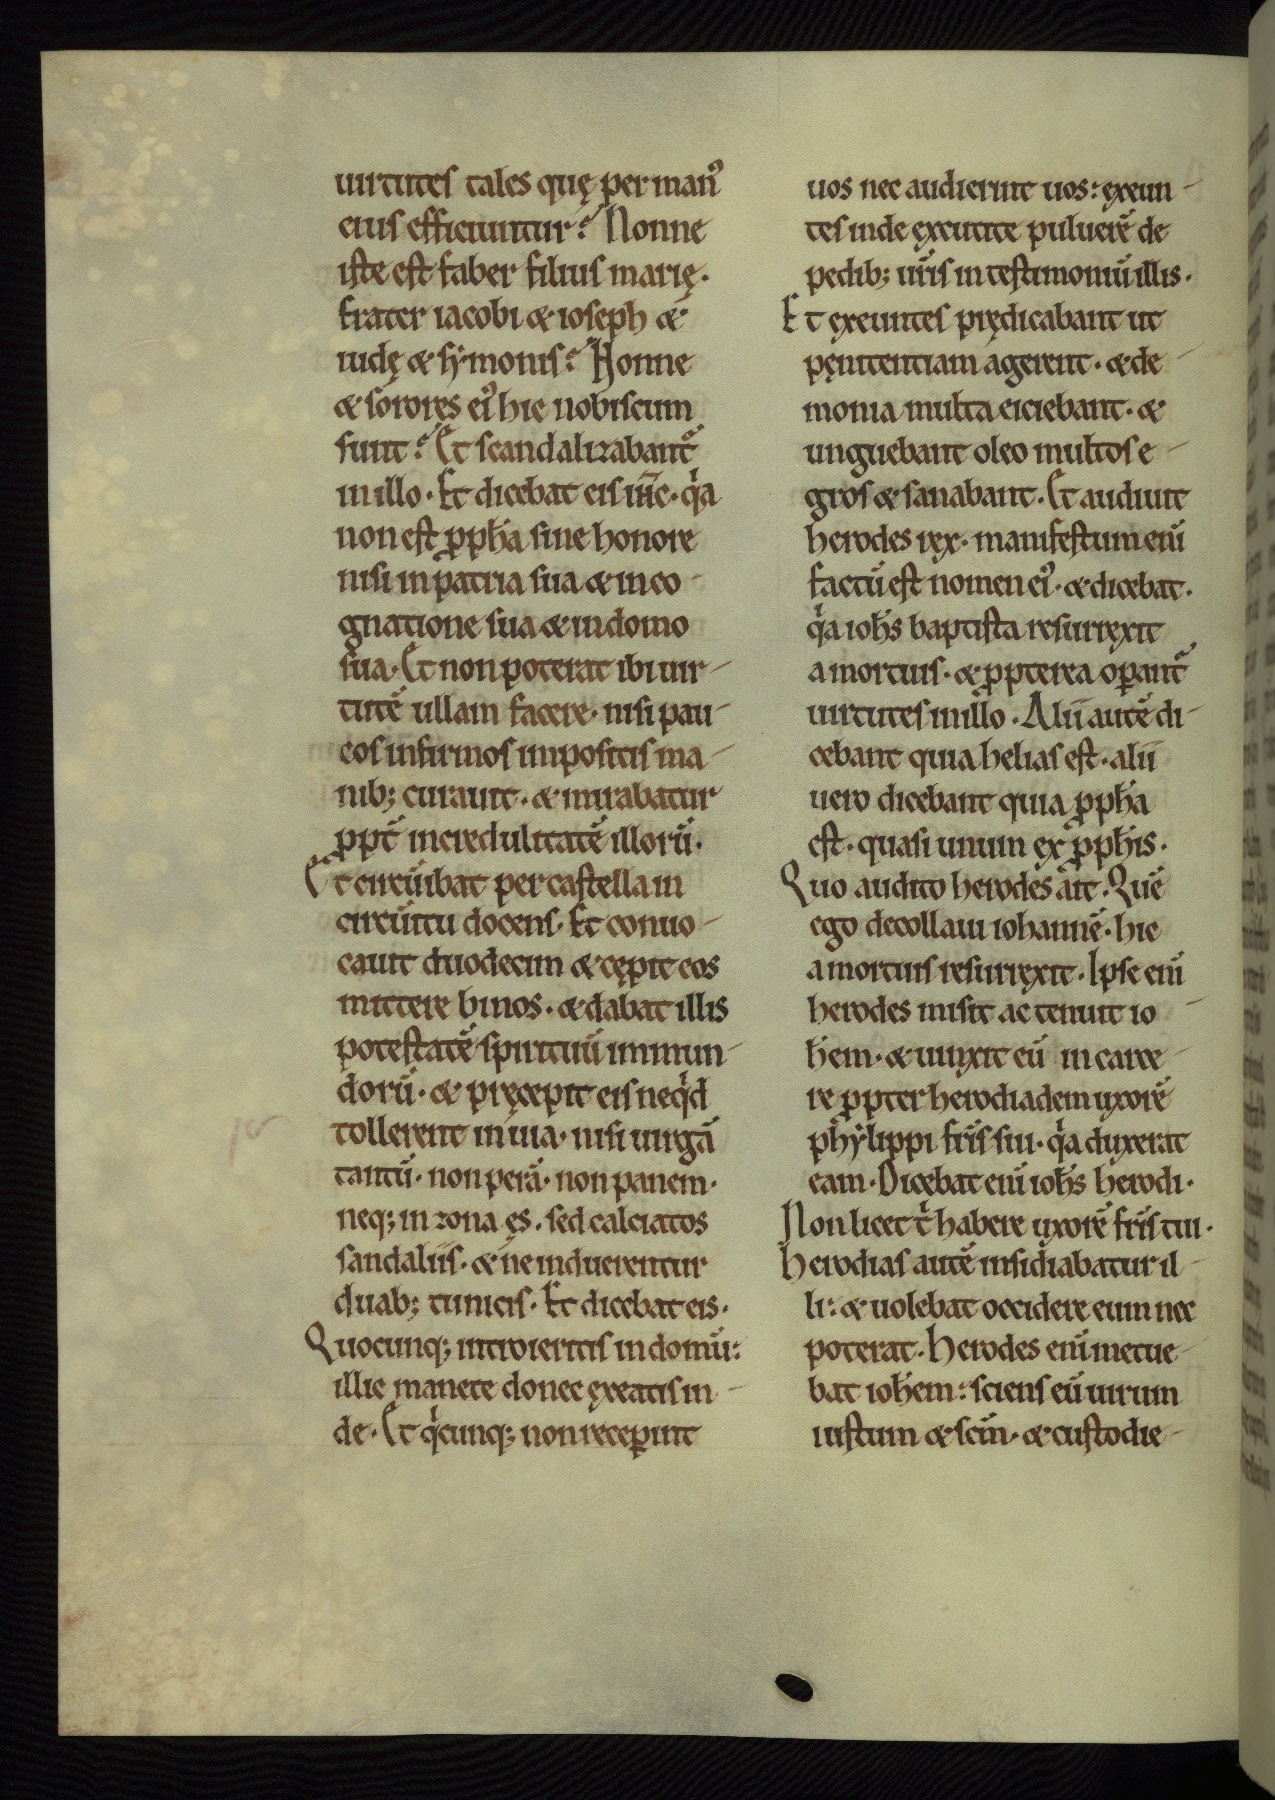 uirtutes tales quę per man᷒
eius efficiuntur? Nonne
iste est faber filius marię.
frater iacobi & ioseph &
iudę & symonis? Nonne
& sorores ei᷒ hic nobiscum
sunt? Et scandalizabant᷑
in illo. Et dicebat eis ihc. qͥa
non est ꝓph̅a sine honore
nisi in patria sua & in co-
gnatione sua & in domo
sua. Et non poterat ibi uir-
tutē ullam facere. nisi pau-
cos infirmos impositis ma-
nib; curauit. & mirabatur
ꝓpt̄ incredulitatē illorū.
Et circūibat per castella in
circūitu docens. Et conuo-
cauit duodecim & cępit eos
mittere binos. & dabat illis
potestatē spirituū immun-
dorū. & pręcepit eis neqͥd
tollerent in uia. nisi uirgā
tantū. non perā. non panem.
neq; in zona ęs. sed calciatos
sandaliis. & ne induerentur
duab; tunicis. Et dicebat eis.
Quocunq; introieritis in domū:
illic manete donec exeatis in-
de. Et qͥcunq; non receꝑint
uos nec audierint uos: exeun-
tes inde excutite puluerē de
pedib; ur̄is in testimoniū illis.
Et exeuntes prędicabant ut
pęnitentiam agerent. & de-
monia multa eiciebant. &
unguebant oleo multos e-
gros & sanabant. Et audiuit
herodes rex. manifestum eni̅
factū est nomen ei᷒. & dicebat.
qͥa ioh̅s baptista resurrexit
a mortuis. & ꝓpterea oꝑant᷑
uirtutes in illo. Alii autē di-
cebant quia helias est. alii
uero dicebant quia ꝓph̅a
est. quasi unum ex ꝓph̅is.
Quo audito herodes ait. Quē
ego decollaui iohannē. hic
a mortuis resurrexit. Ipse eni̅
herodes misit ac tenuit io-
h̅em. & uinxit eū in carce-
re ꝓpter herodiadem uxorē
phylippi fr̄is sui. qͥa duxerat
eam. Dicebat eni̅ ioh̅s herodi.
Non licet tͥ habere uxorē fr̄is tui.
Herodias autē insidiabatur il-
li: & uolebat occidere eum nec
poterat. Herodes eni̅ metue-
bat ioh̅em: sciens eū uirum
iustum & sc̄m. & custodie-